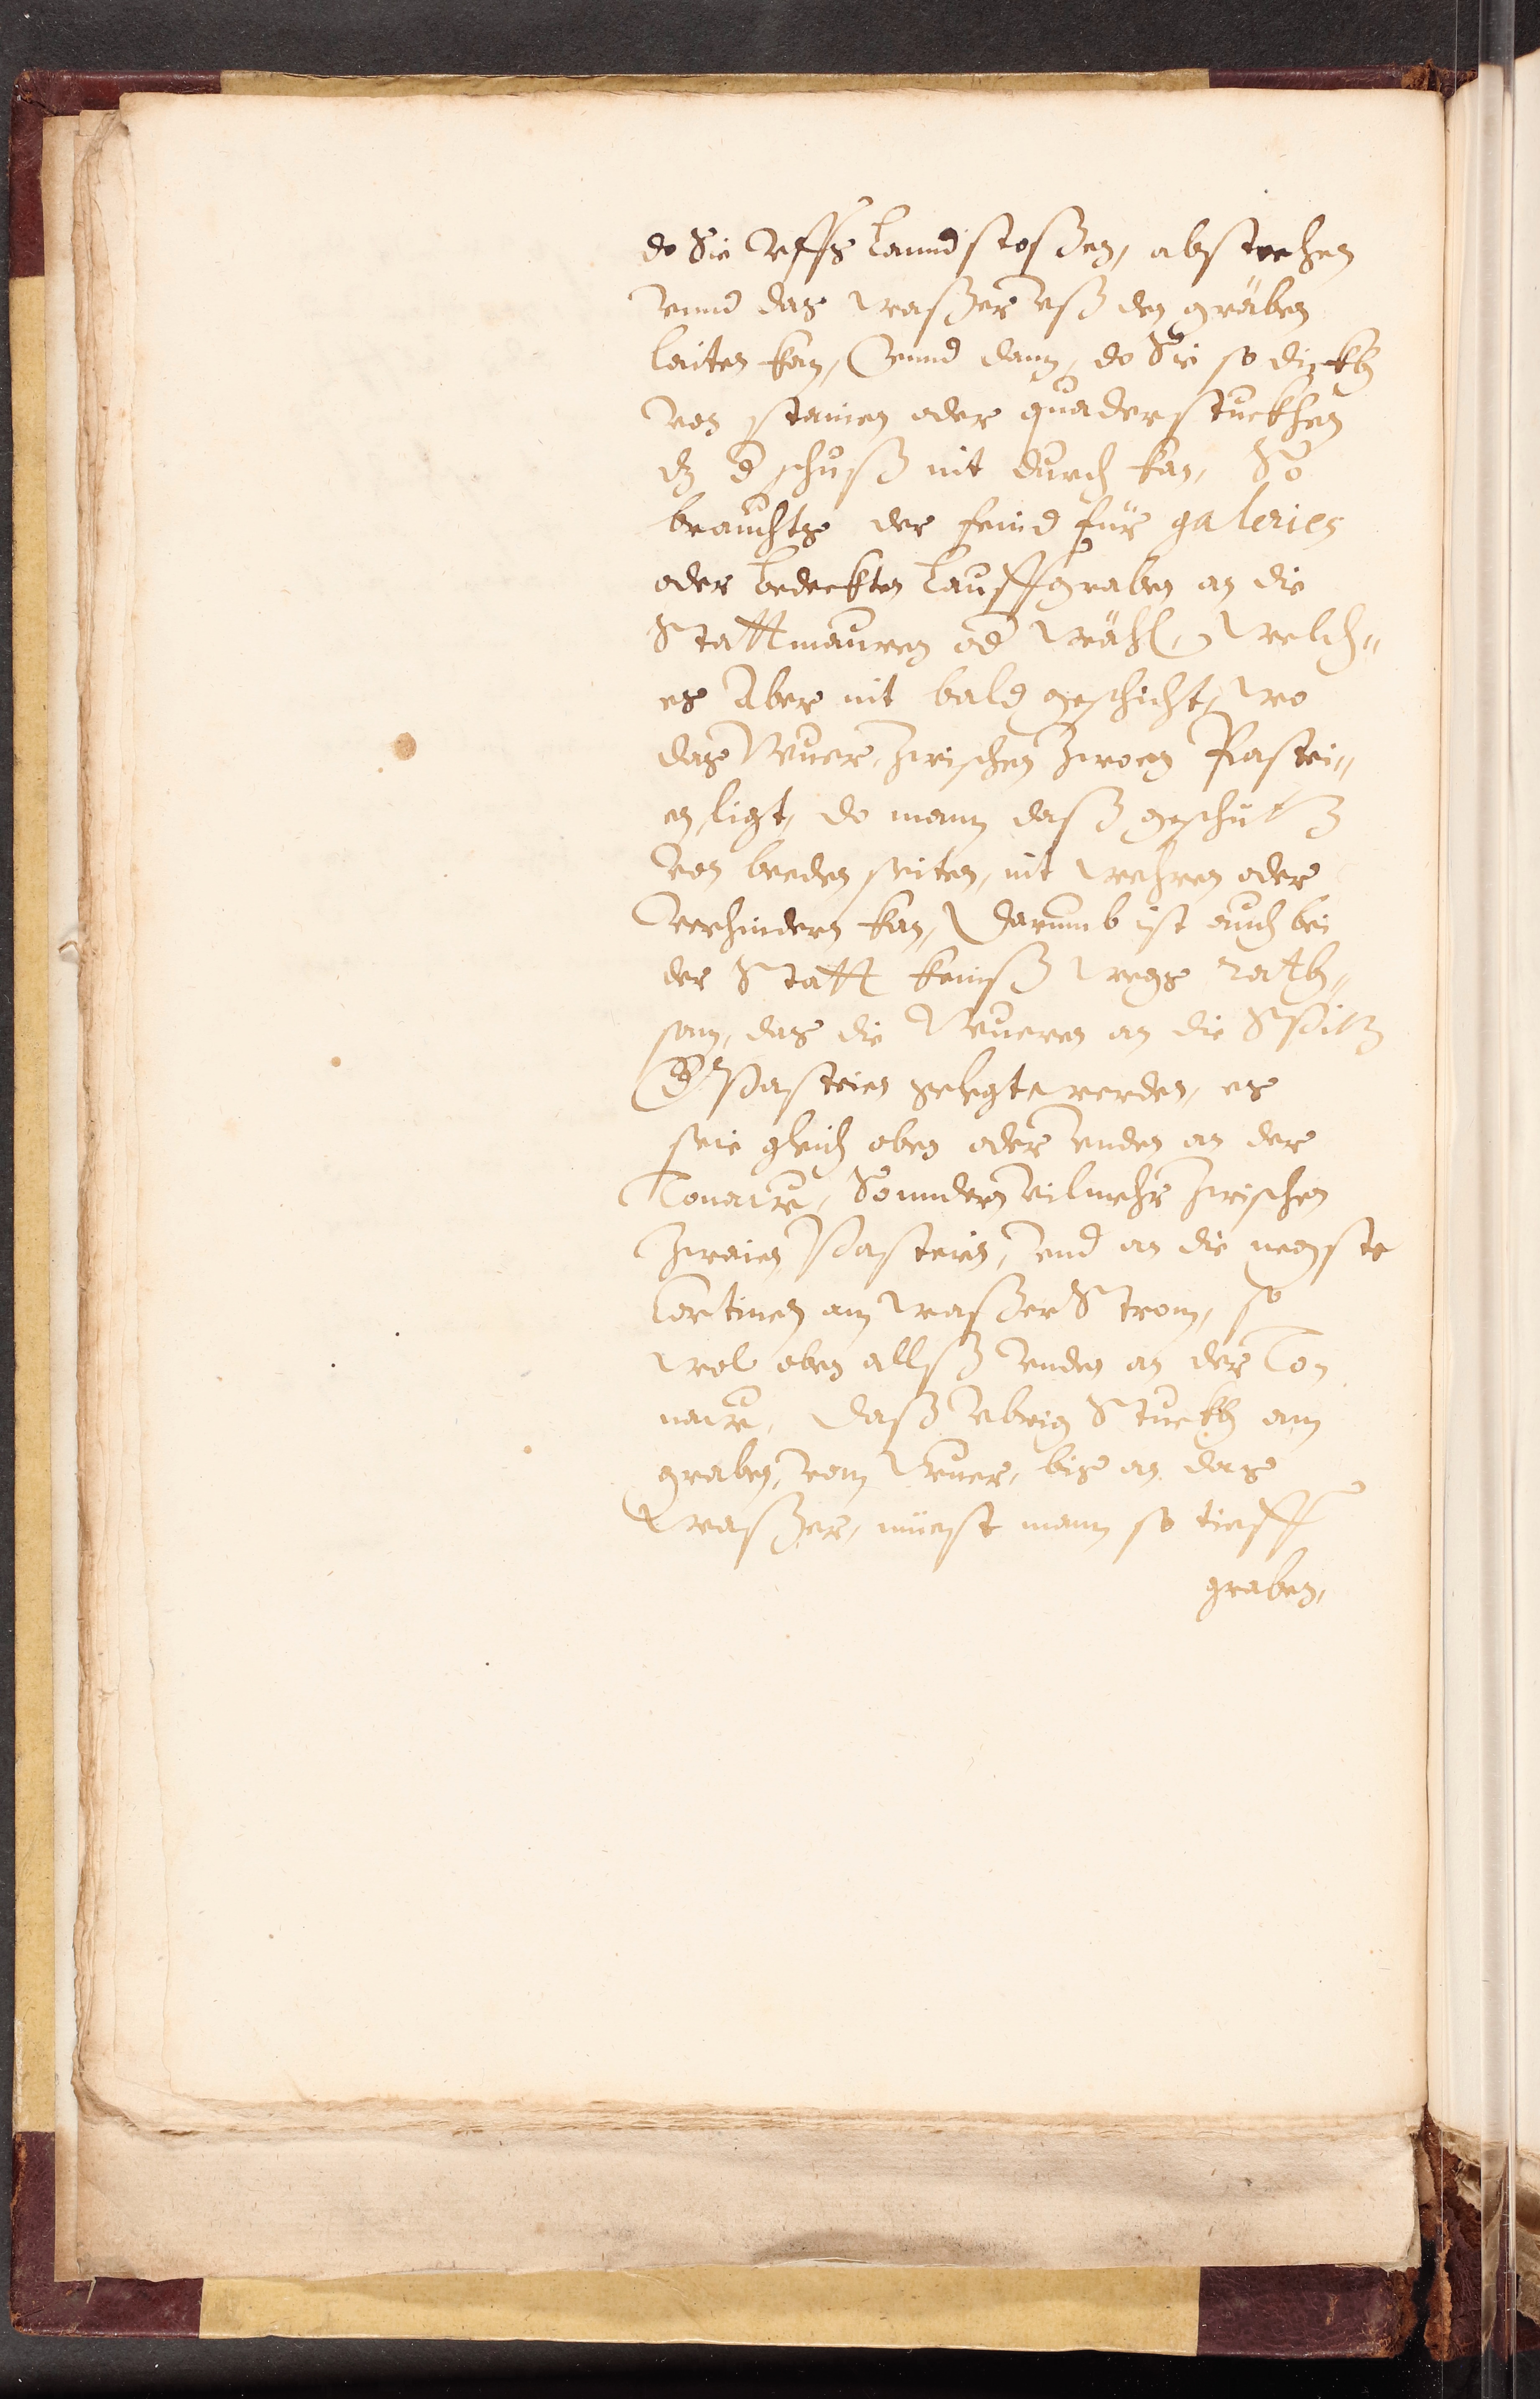 do Sie vffs Lannd stoßen, abstechen
vnnd das waßer vß den gräben
laiten kan, Vnnd dann, do Sie so dickh
von stainen oder quaderstuckhen
dz d schuß nit durch kan, So
brauchts der feind für galerien
oder bedeckten Lauffgraben an die
Stattmauren od Wähl, Welch„
es Aber nit bald geschicht, wo
das Wuer, zwischen zwoen Pastei„
en ligt, do mann daß geschütz
von beeden seiten, nit wehren oder
verhindern kan, Darumb ist auch bei
der Statt keinß wegs rath„
sam, das die Wueren an die Spitz
d Pasteien gelegt werden, es
seie gleich oben oder vnden an der
Tonaw, Sonndern vilmehr zwischen
zwaien Pasteien, vnd an die negste
Cortinen am waßer Strom, so
wol oben allß vnden an der To„
naw, Daß vbrig Stuckh am
graben, vom Wuer, bis an das
Waßer, müest mann so tieff
graben,